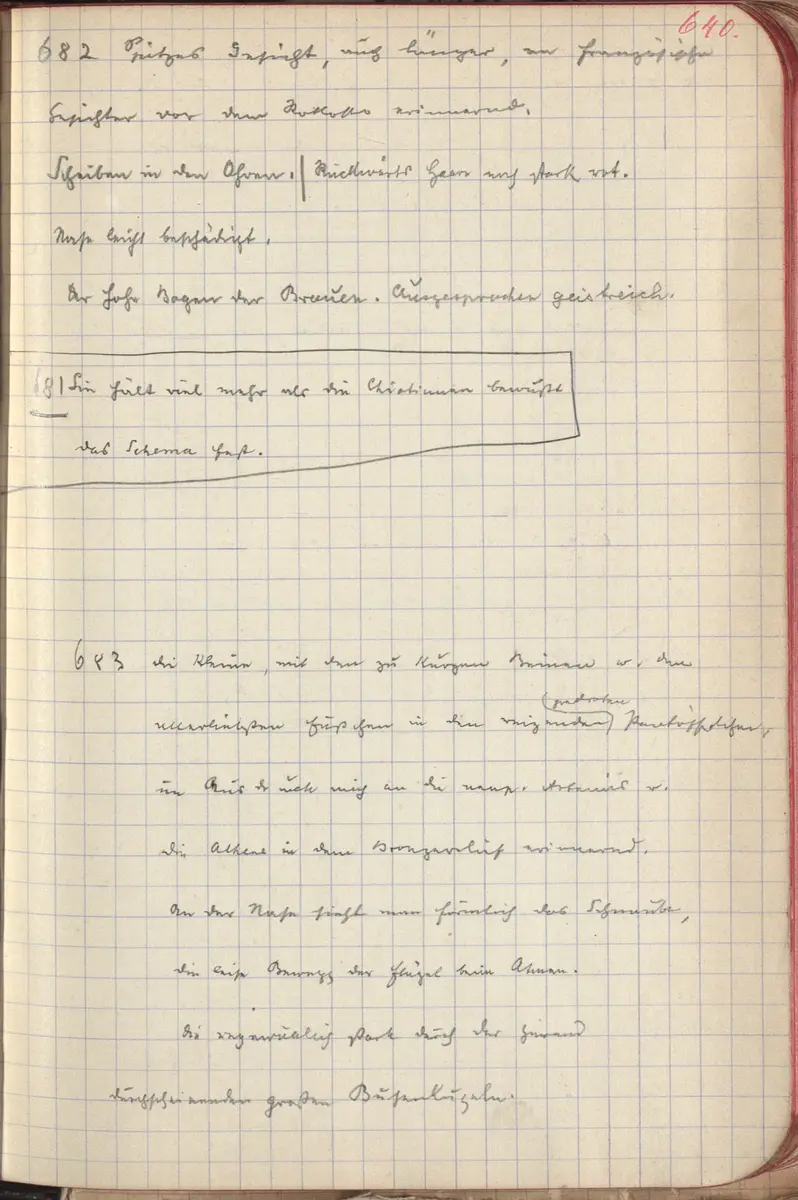 640.
682 Spitzes Gesicht, auch länger, an französische
Gesichter vor dem Rokoko erinnernd.
Scheiben in den Ohren. | Rückwärts Haare noch stark rot.
Nase leicht beschädigt.
Der hohe Bogen der Brauen. Ausgesprochen geistreich.
681 Sie hält viel mehr als die Chiotinnen bewußt
das Schema fest.
683 die Kleine, mit den zu kurzen Beinen u. den
(yroten
allerliebsten Füßchen in den reizenden) Pantöffelchen,
im Ausdruck mich an die neap. Artemis u.
die Athene in dem Bronzerelief erinnernd.
An der Nase sieht man förmlich das
die leise Bewegg der Flügel beim Atmen.
die stark durch das Gewand
durchscheinenden großen Busenkugeln.